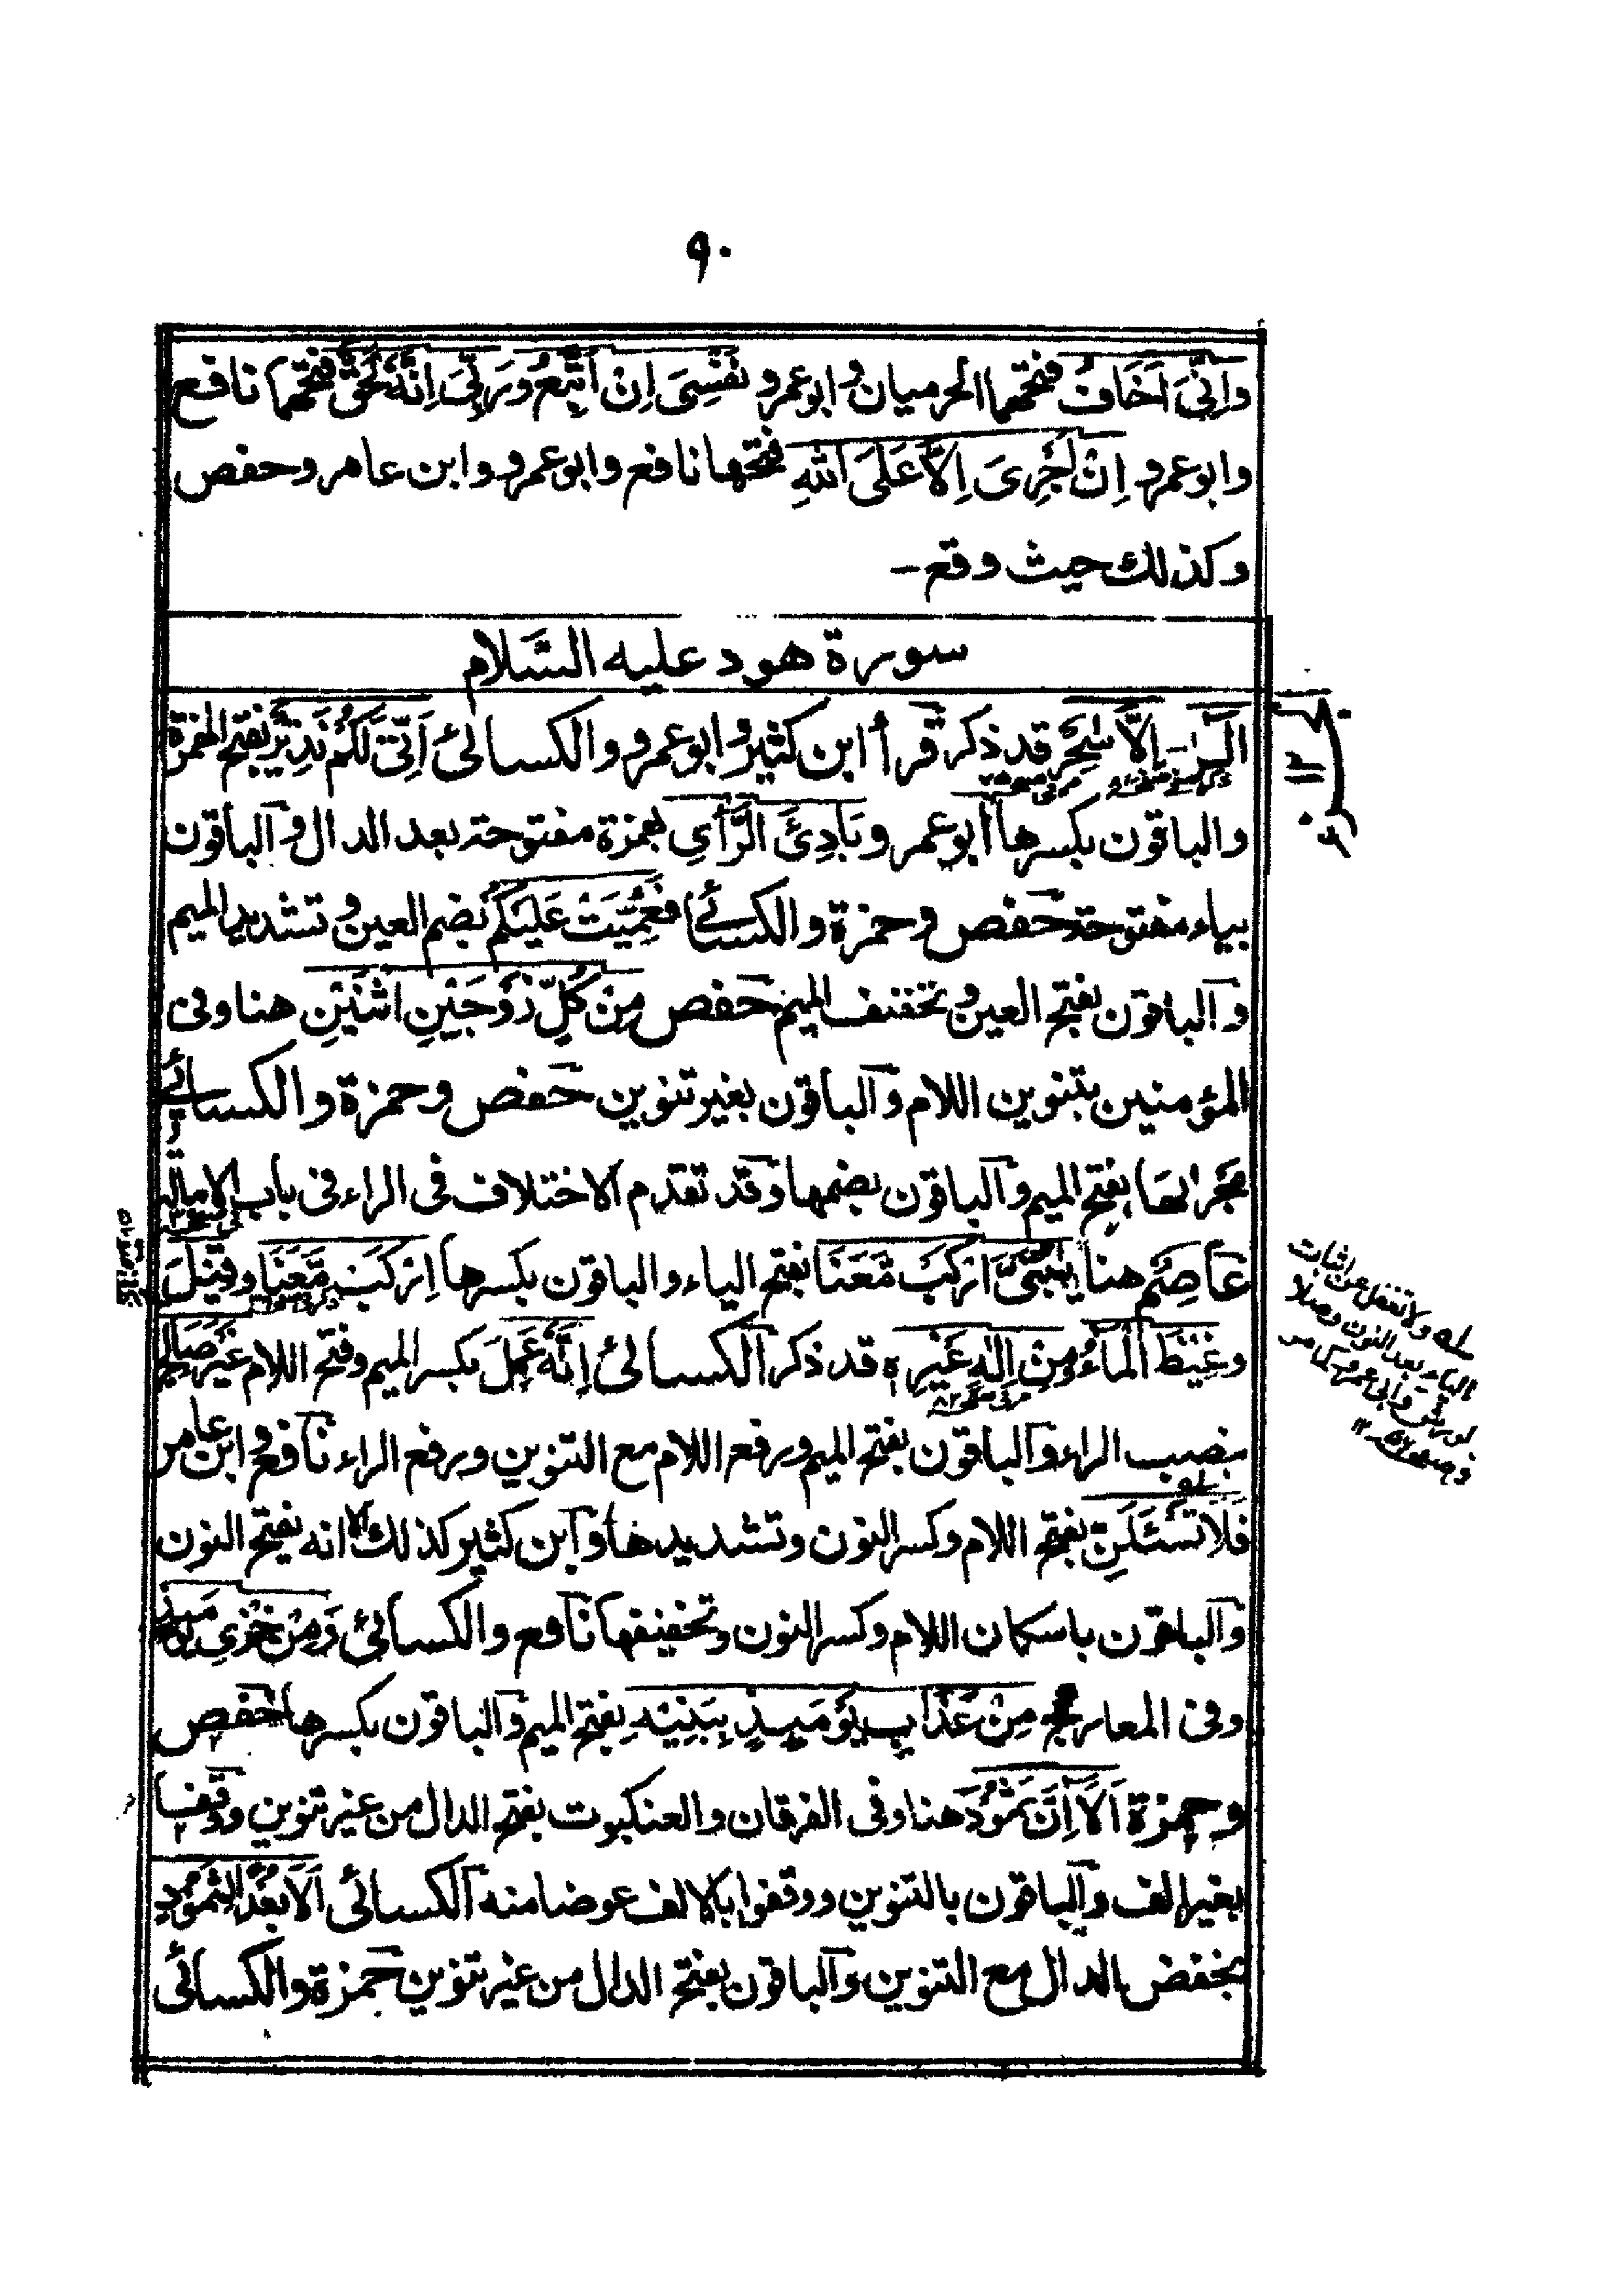 ٩٠
وَاِنِّيَ اَخَافُ فتحهما الحرميان وابو عمرو نَفْسِيَ اِنْ اَتَّبِعُ وَرَبِّيَ اِنَّهُ لَحَقٌّ فتحهما نافع
وابو عمرو اِنْ اَجْرِيَ اِلَّا عَلَى اللّٰهِ فتحها نافع وابو عمرو وابن عامر وحفص
وكذلك حيث وقع -
سورة هود عليه السّلام
الٓرٰ اِلَّا سٰحِرٌ قد ذكر قرأ ابن كثير وابو عمرو والكسائى اَنِّىْ لَكُمْ نَذِيْرٌ بفتح الهمزة
والباقون بكسرها ابو عمرو بَادِئَ الرَّأْىِ بهمزة مفتوحة بعد الدال والباقون
بياء مفتوحة حفص وحمزة والكسائى فَعُمِّيَتْ عَلَيْكُمْ بضم العين وتشديد الميم
والباقون بفتح العين وتخفيف الميم حفص مِنْ كُلٍّ زَوْجَيْنِ اثْنَيْنِ هنا وفى
المؤمنين بتنوين اللام والباقون بغير تنوين حفص وحمزة والكسائى
مجرٰىها بفتح الميم والباقون بضمها وقد تقدم الاختلاف فى الراء فى باب الامالة
عَاصِمٌ هنا يٰبُنَىَّ ارْكَبْ مَّعَنَا بفتح الياء والباقون بكسرها اِرْكَبْ مَّعَنَا وَقِيْلَ
وَغِيْضَ الْمَاءُ وَمِنْ اِلٰهٍ غَيْرِهٖ قد ذكر الكسائى اِنَّهُ عَمِلَ بكسر الميم وفتح اللام غَيْرَ صَالِحٍ
بنصب الراء والباقون بفتح الميم ورفع اللام مع التنوين ورفع الراء نافع وابن عامر
فَلَا تَسْئَلَنِّ بفتح اللام وكسر النون وتشديدها وابن كثير كذلك الا انه يفتح النون
والباقون باسكان اللام وكسر النون وتخفيفها نافع والكسائى وَمِنْ خِزْىِ يَوْمَئِذٍ
وفى المعارج مِنْ عَذَابِ يَوْمَئِذٍ بِبَنِيْهِ بفتح الميم والباقون بكسرها حفص
وحمزة اَلَا اِنَّ ثَمُوْدَ هنا وفى الفرقان والعنكبوت بفتح الدال من غير تنوين ووقفا
بغير الف والباقون بالتنوين ووقفوا بالالف عوضا منه الكسائى اَلَا بُعْدًا لِّثَمُوْدٍ
بخفض الدال مع التنوين والباقون بفتح الدال من غير تنوين حمزة والكسائى
له ولا تغفل عن اثبات
الياء بعد النون وصلا
لورش وابى عمرو كما مر